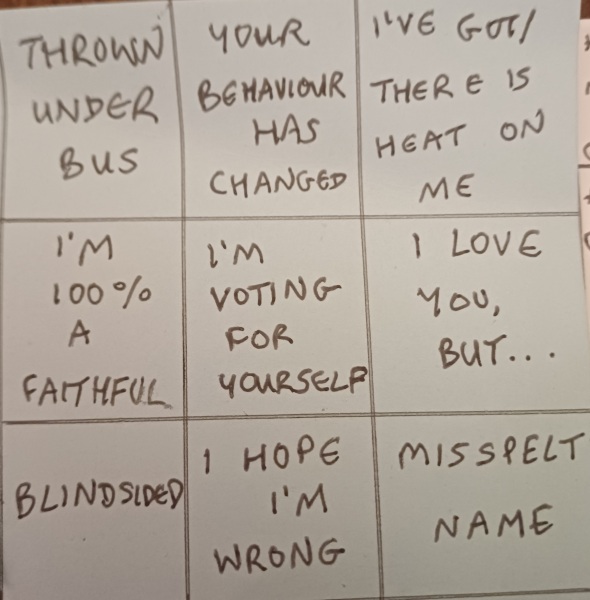 THROWN
UNDER
BUS
YOUR
BEHAVIOUR
HAS
CHANGED
I'VE GOT/
THERE IS
HEAT ON
ME
I'M
100%
A
FAITHFUL
I'M
VOTING
FOR
YOURSELF
I LOVE
YOU,
BUT...
BLINDSIDED
I HOPE
I'M
WRONG
MISSPELT
NAME